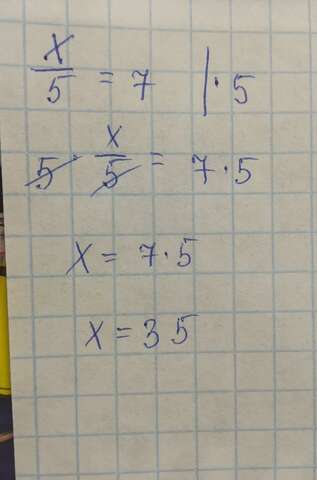 x/5 = 7 | · 5
5 · x/5 = 7 · 5
x = 7 · 5
x = 35